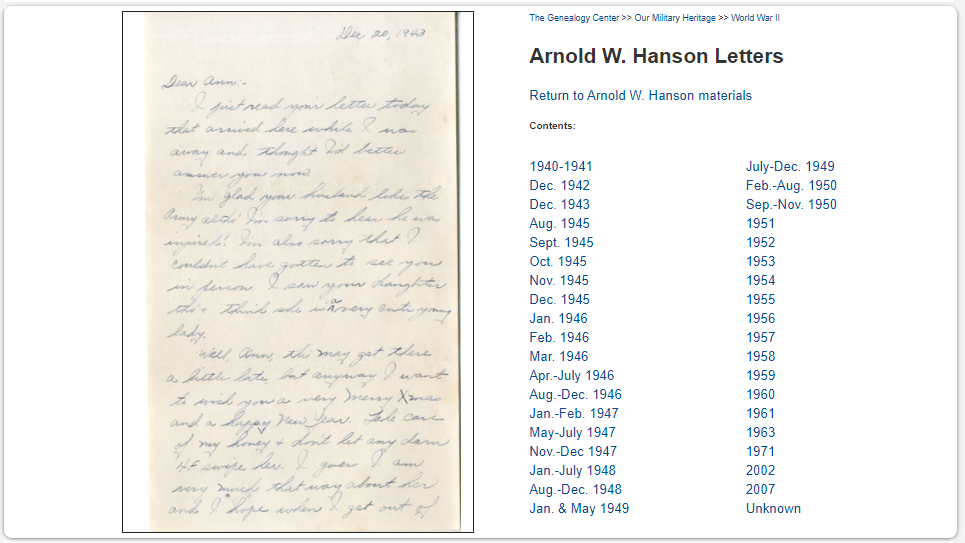 Dec 20, 1943
Dear Ann:-
I just read your letter today
that arrived here while I was
away and thought I'd better
answer you now.
I'm glad your husband likes the
Army altho' I'm sorry to hear he was
injured! I'm also sorry that I
couldn't have gotten to see you
in person. I saw your daughter
tho + think she is a very cute young
lady.
Well, Ann, this may get there
a little late, but anyway I want
to wish you a very Merry Xmas
and a happy New Year. Take care
of my honey + don't let any darn
4F swipe her. I guess I am
very much that way about her
and I hope when I get out of
The Genealogy Center >> Our Military Heritage >> World War II
Arnold W. Hanson Letters
Return to Arnold W. Hanson materials
Contents:
1940-1941
Dec. 1942
Dec. 1943
Aug. 1945
Sept. 1945
Oct. 1945
Nov. 1945
Dec. 1945
Jan. 1946
Feb. 1946
Mar. 1946
Apr.-July 1946
Aug.-Dec. 1946
Jan.-Feb. 1947
May-July 1947
Nov.-Dec 1947
Jan.-July 1948
Aug.-Dec. 1948
Jan. & May 1949
July-Dec. 1949
Feb.-Aug. 1950
Sep.-Nov. 1950
1951
1952
1953
1954
1955
1956
1957
1958
1959
1960
1961
1963
1971
2002
2007
Unknown